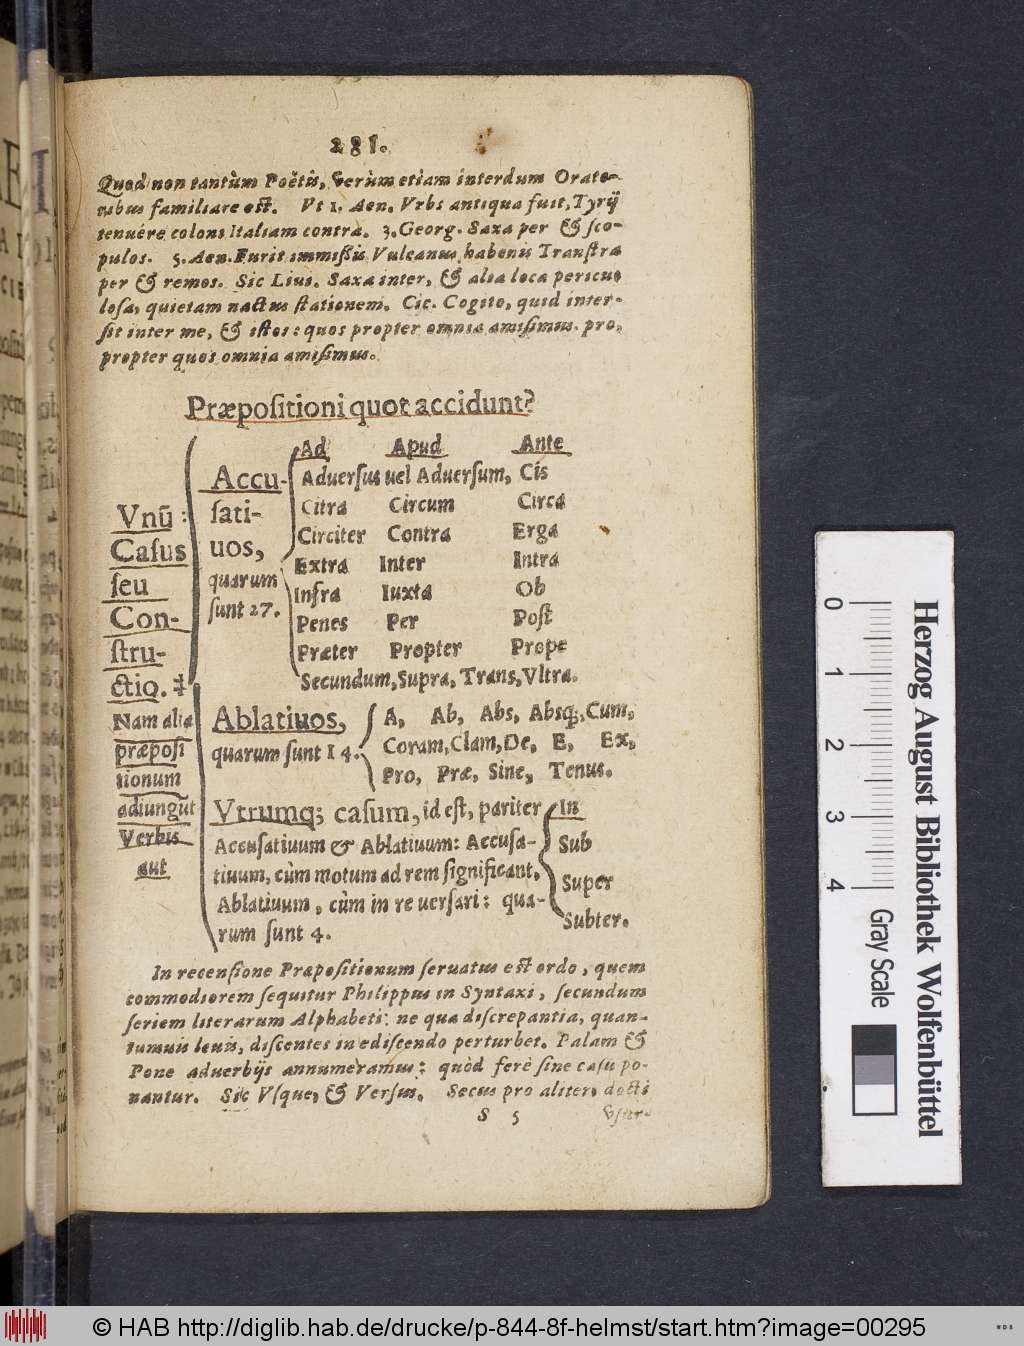 281.
Quod non tantùm Poëtis, verùm etiam interdum Orato-
ribus familiare est. Vt 1. Aen. Vrbs antiqua fuit, Tyrij
tenuêre coloni Italiam contra. 3. Georg. Saxa per & ſco-
pulos. 5. Aen. Furit immiſſis Vulcanus habenis Tranſtra
per & remos. Sic Liui. Saxa inter, & alia loca pericu-
loſa, quietam nactus ſtationem. Cic. Cogito, quid inter-
ſit inter me, & iſtos: quos propter omnia amiſimus. pro,
propter quos omnia amiſimus.
Præpoſitioni quot accidunt?
Vnũ:
Caſus
ſeu
Con-
ſtru-
ctio.
Nam alia
præpoſi
tionum
adiungũt
Verbis
aut
Accu-
ſati-
uos,
quarum
ſunt 27.
Ad Apud Ante
Aduerſus uel Aduerſum, Cis
Citra Circum Circa
Circiter Contra Erga
Extra Inter Intra
Infra Iuxta Ob
Penes Per Poſt
Præter Propter Prope
Secundum, Supra, Trans, Vltra.
Ablatiuos,
quarum ſunt 14.
A, Ab, Abs, Absq;, Cum,
Coram, Clam, De, E, Ex,
Pro, Præ, Sine, Tenus.
Vtrumq; caſum, id eſt, pariter
Accuſatiuum & Ablatiuum: Accuſa-
tiuum, cùm motum ad rem ſignificant,
Ablatiuum, cùm in re uerſari: qua-
rum ſunt 4.
In
Sub
Super
Subter.
In recenſione Præpoſitionum ſeruatus eſt ordo, quem
commodiorem ſequitur Philippus in Syntaxi, ſecundum
ſeriem literarum Alphabeti: ne qua diſcrepantia, quan-
tumuis leuis, diſcentes in ediſcendo perturbet. Palam &
Pone aduerbijs annumeramus: quòd ferè ſine caſu po-
nantur. Sic Vſque, & Verſus. Secus pro aliter, docti
S 5
0 1 2 3 4
Gray Scale
Herzog August Bibliothek Wolfenbüttel
© HAB http://diglib.hab.de/drucke/p-844-8f-helmst/start.htm?image=00295